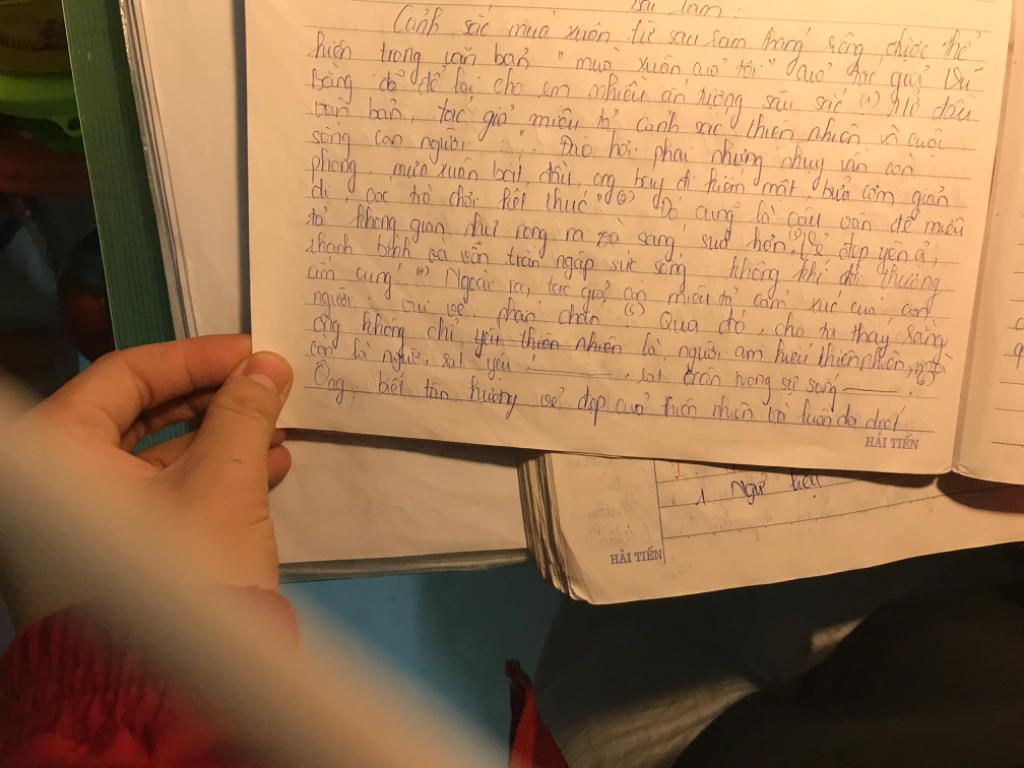 Bài làm:
Cảnh sắc mùa xuân từ sau rằm tháng giêng được thể
hiện trong văn bản "mùa xuân của tôi" của tác giả Vũ
Bằng đã để lại cho em nhiều ấn tượng sâu sắc (1) Mở đầu
văn bản, tác giả miêu tả cảnh sắc thiên nhiên và cuộc
sống con người: "... Đào hơi phai nhưng nhụy vẫn còn
phong, mưa xuân bắt đầu, ong bay đi kiếm mật bữa cơm giản
dị, các trò chơi kết thúc" (2) Đó cũng là câu văn để miêu
tả không gian như rộng ra và sáng sủa hơn (3) Vẻ đẹp yên ả,
thanh bình và vẫn tràn ngập sức sống. không khí đời thường
ấm cúng (4) Ngoài ra, tác giả còn miêu tả cảm xúc của con
người: vui vẻ, phấn chấn (5) Qua đó, cho ta thấy rằng
ông không chỉ yêu thiên nhiên là người am hiểu thiên nhiên, mà
còn là người rất yêu ..., rất trân trọng sự sống
Ông biết tận hưởng vẻ đẹp của thiên nhiên và luôn
HẢI TIẾN
1 Ngữ liệu
HẢI TIẾN